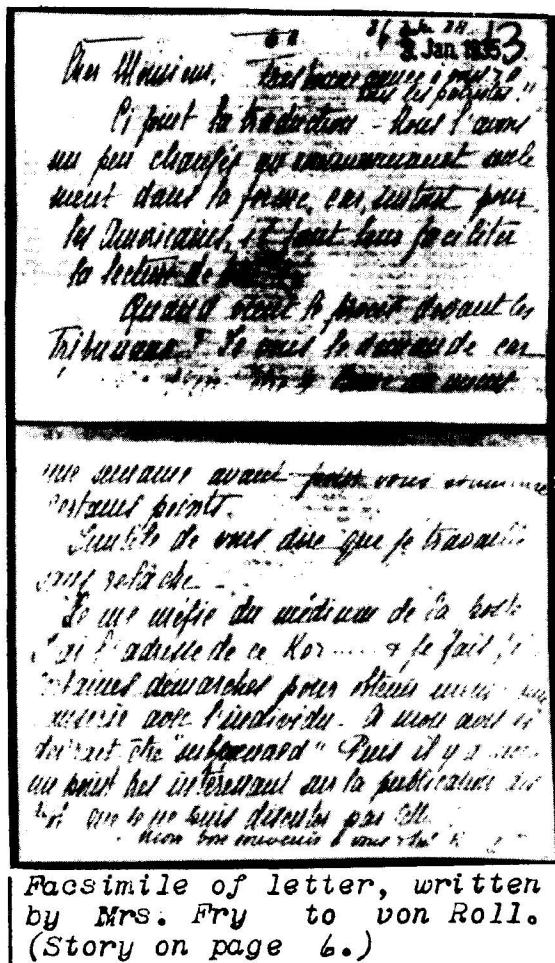 3. Jan. 1935 13
Cher Monsieur, très bonne année à vous
tous les
Ci joint la traduction - Nous l'avons
un peu changée au commencement seule
ment dans la forme, car, surtout pour
les Américains, il faut leur faciliter
la lecture de
Quand vient le procès devant les
Tribunaux? Je vous le demande car
une semaine avant pour vous
certains points.
Inutile de vous dire que je travaille
sans relâche
Je me méfie du médium de la poste
J'ai l'adresse de ce Kor.... & je fais
certaines démarches pour obtenir
causerie avec l'individu. A mon avis il
devrait être "subpoenaed" Puis il y a
un point très intéressant sur la publication des
que je ne puis discuter par
mon bon souvenir à vous
Facsimile of letter, written
by Mrs. Fry to von Roll.
(Story on page 6.)